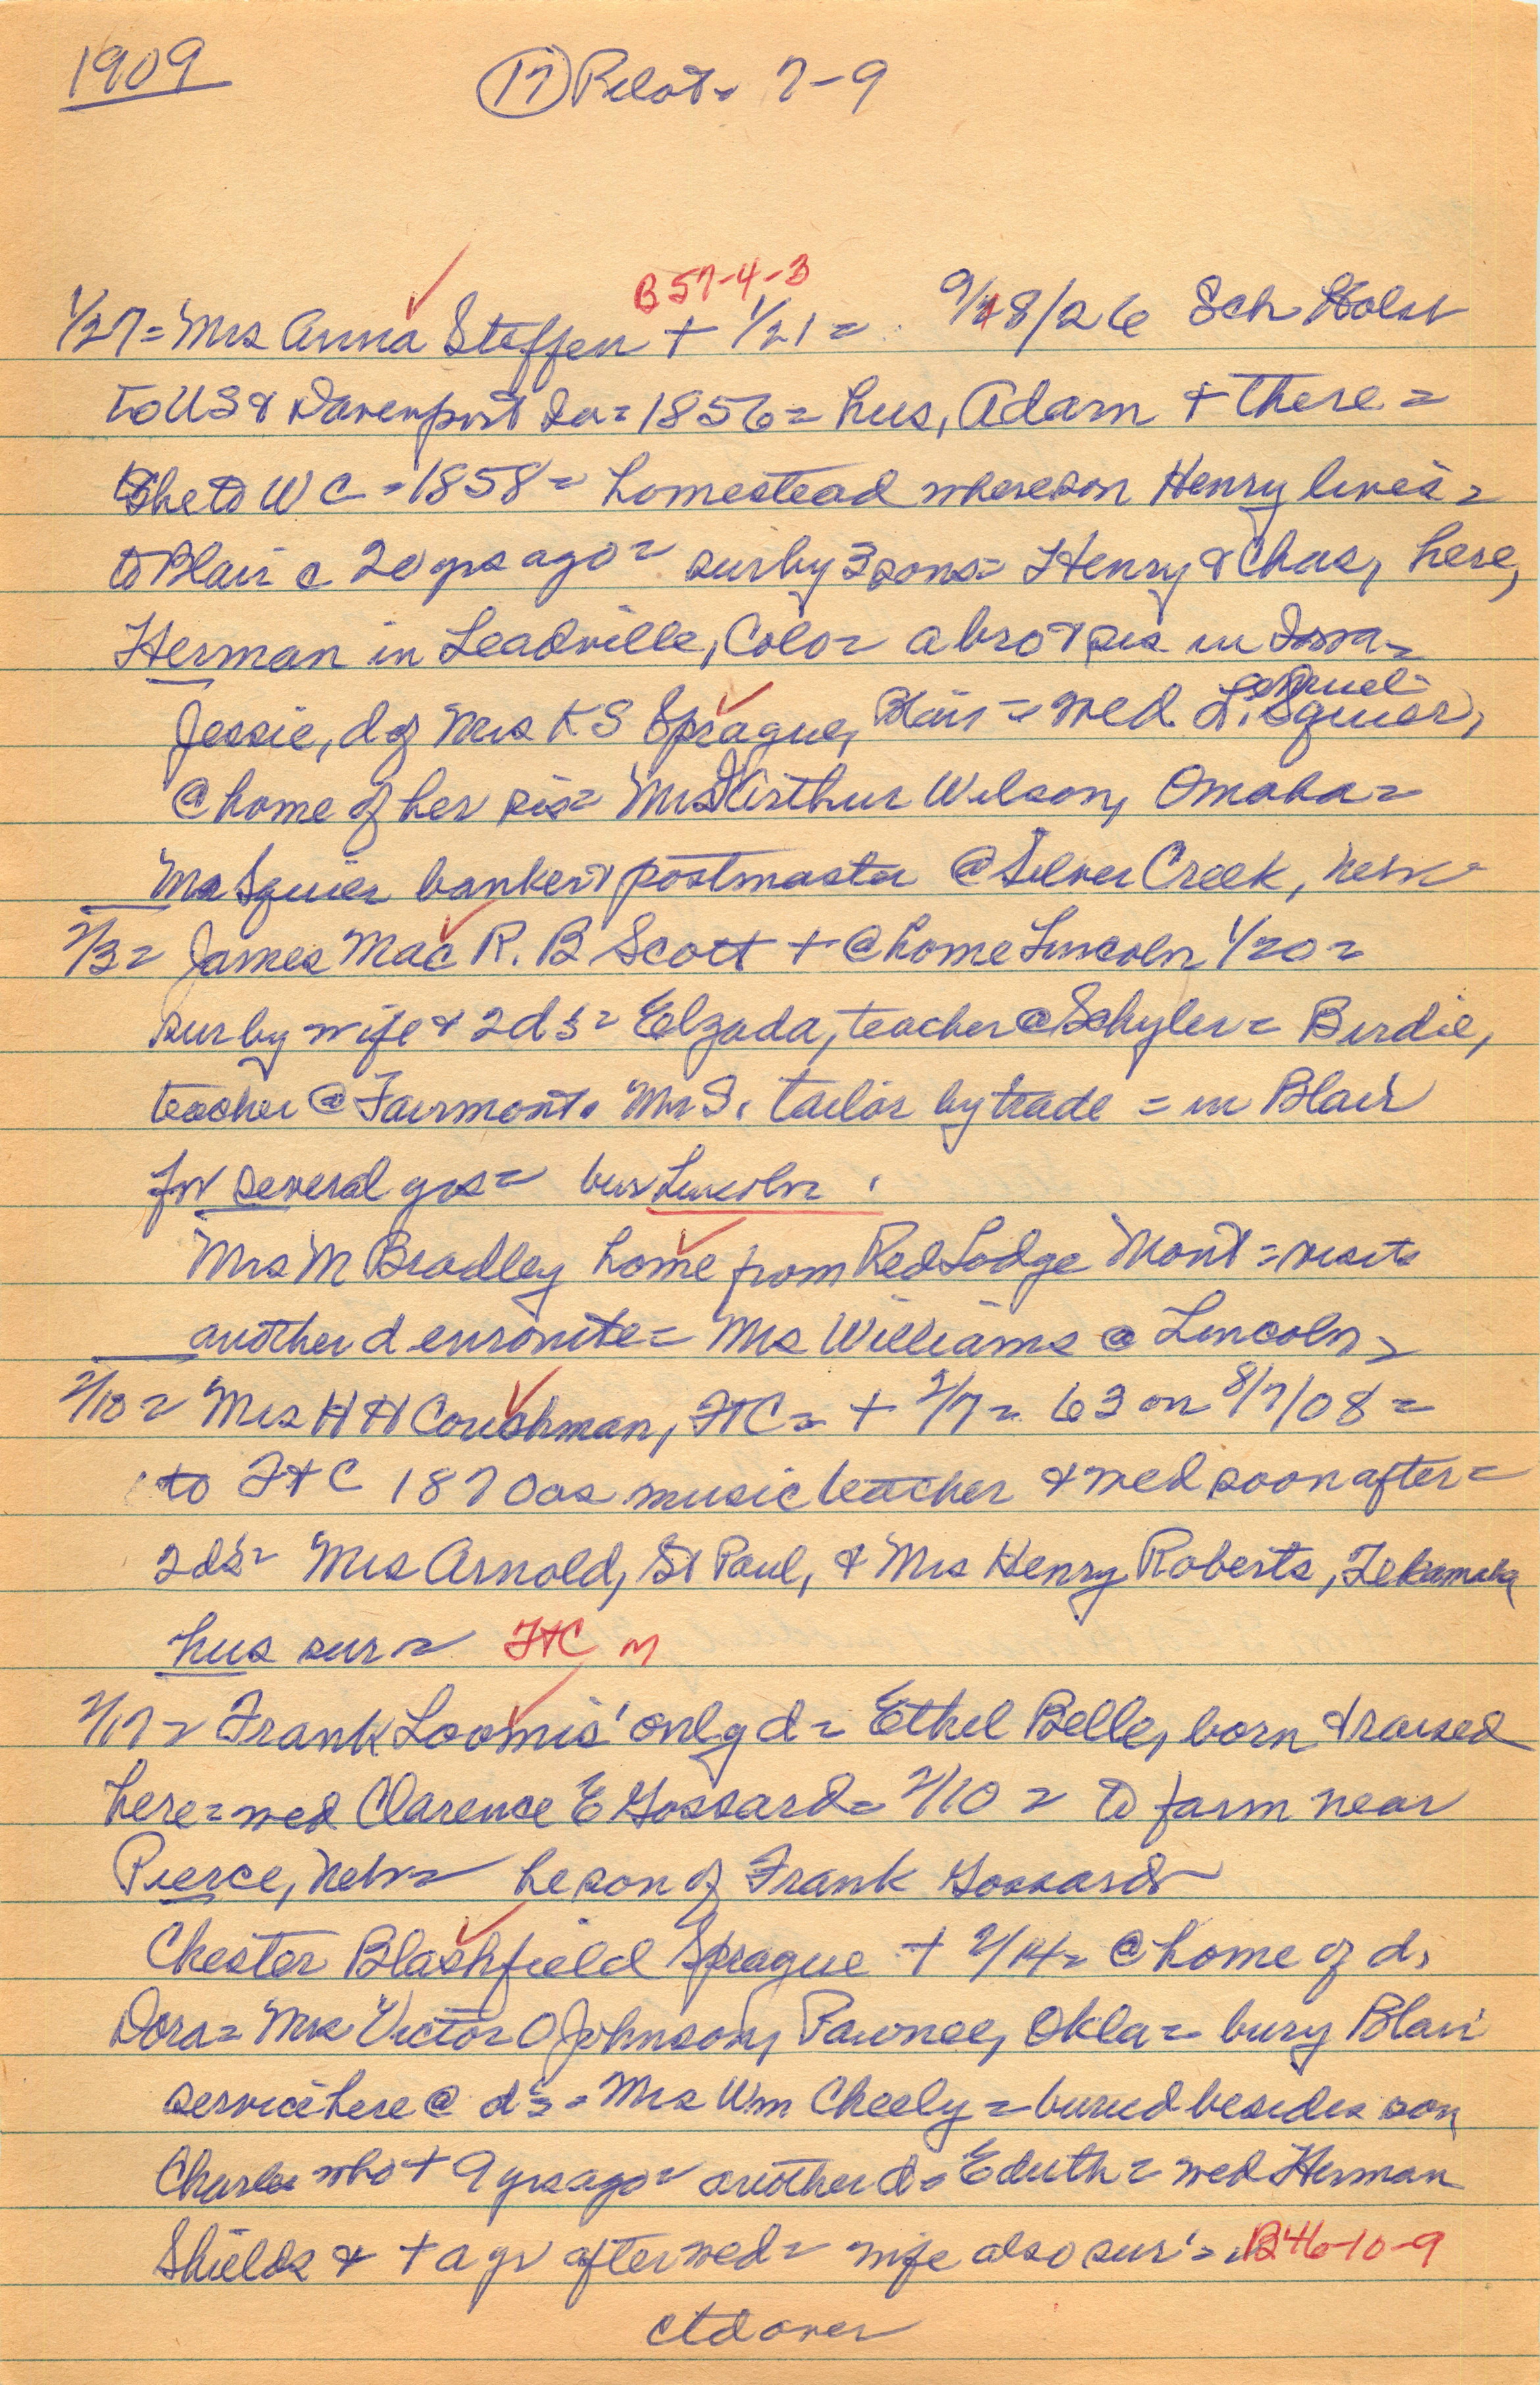 1909
(17) Pilot. 7-9
B 57-4-3
1/27= Mrs Anna Steffen + 1/21= 9/28/26 Sch Holst
to US & Davenport Ia= 1856= hus, Adam + there=
She to WC - 1858= homestead where son Henry lives=
to Blair c 20 yrs ago= sur by 3 sons= Henry & Chas, here,
Herman in Leadville, Colo= a bro & sis in Iowa=
Jessie, d of Mrs KS Sprague, Blair= wed L. Squier,
@ home of her sis= Mrs Arthur Wilson, Omaha=
Mr Squier banker & postmaster @ Silver Creek, Nebr=
2/3= James Mac R. B Scott + @ home Lincoln 1/20=
sur by wife & 2 d's= Elzada, teacher @ Schyler= Birdie,
teacher @ Fairmont. Mr S. tailor by trade = in Blair
for several yrs= bur Lincoln.
Mrs M Bradley home from Red Lodge Mont= visits
another d enroute= Mrs Williams @ Lincoln=
2/10= Mrs H H Coushman, FtC= + 2/7= 63 on 8/7/08=
to Ft C 1870 as music teacher & wed soon after=
2 d's= Mrs Arnold, St Paul, & Mrs Henry Roberts, Tekamaha
hus sur= FtC M
2/17= Frank Loomis' only d= Ethel Belle, born & raised
here= wed Clarence E Gossard= 2/10= to farm near
Pierce, Nebr= he son of Frank Gossard
Chester Blashfield Sprague + 2/14= @ home of d,
Dora= Mrs Victor O Johnson, Pawnee, Okla= bury Blair
service here @ d's= Mrs Wm Cheely= buried besides son,
Charles who + 9 yrs ago= another d= Eduth= wed Herman
Shields & + a yr after wed= wife also sur'= B46-10-9
ctd over